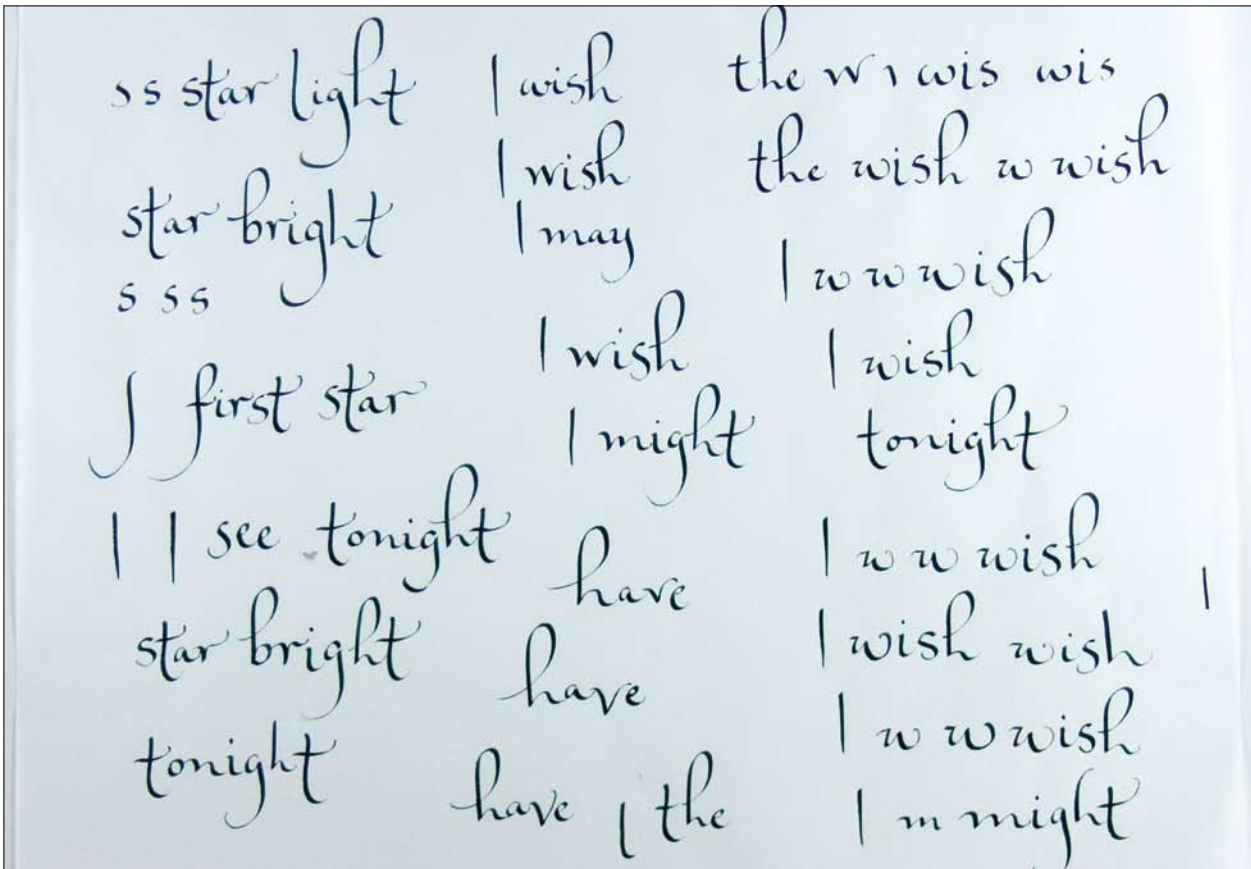 s s star light
star bright
s s s
ſ first star
I I see tonight
star bright
tonight
I wish
I wish
I may
I wish
I might
have
have
have I the
the w ı wis wis
the wish w wish
I w w wish
I wish
tonight
I w w wish
I
I wish wish
I w w wish
I m might